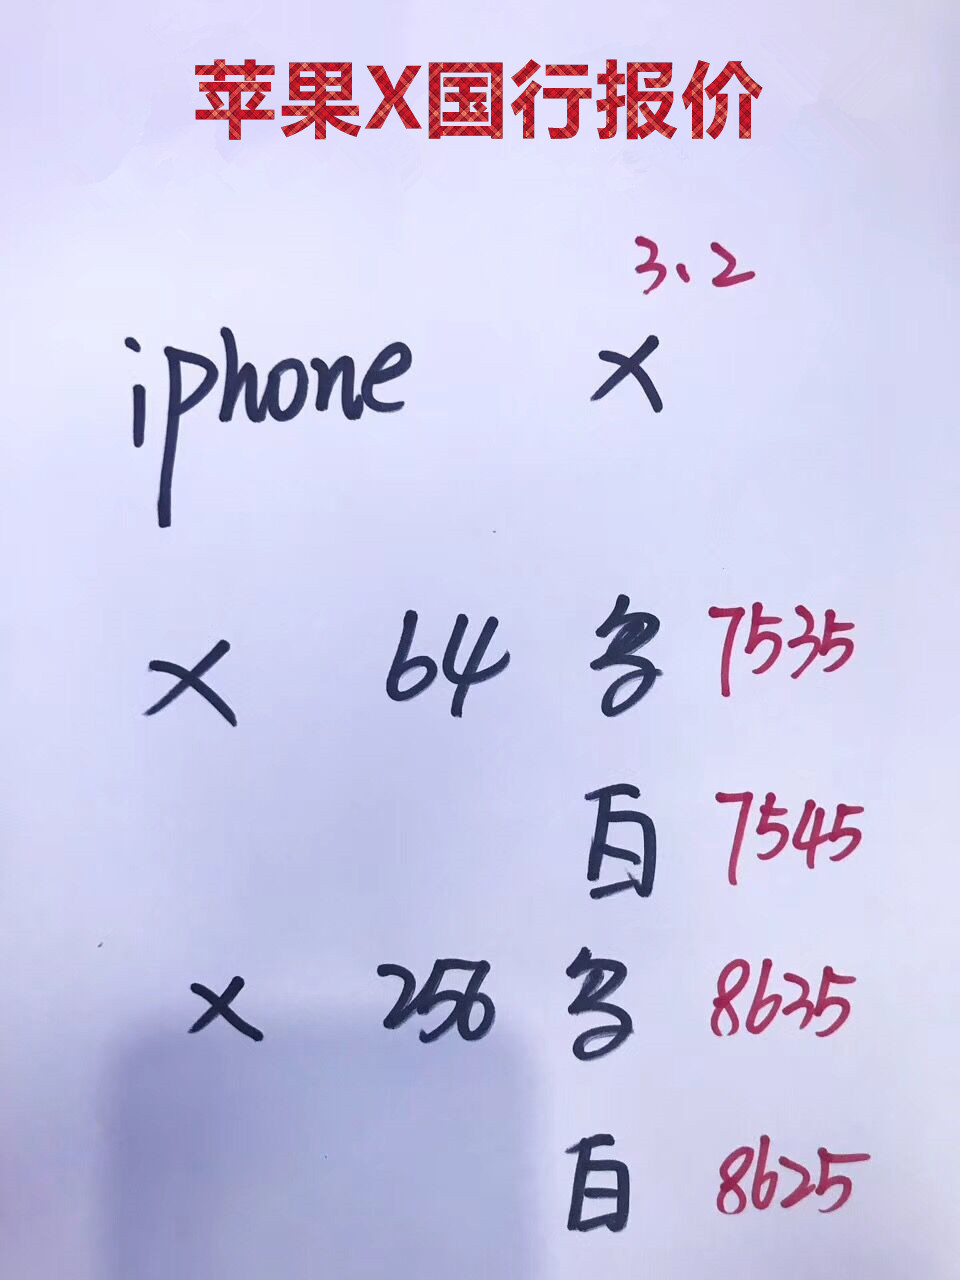 苹果X国行报价
3.2
iphone X
X 64 7535
白 7545
X 256 8635
白 8625